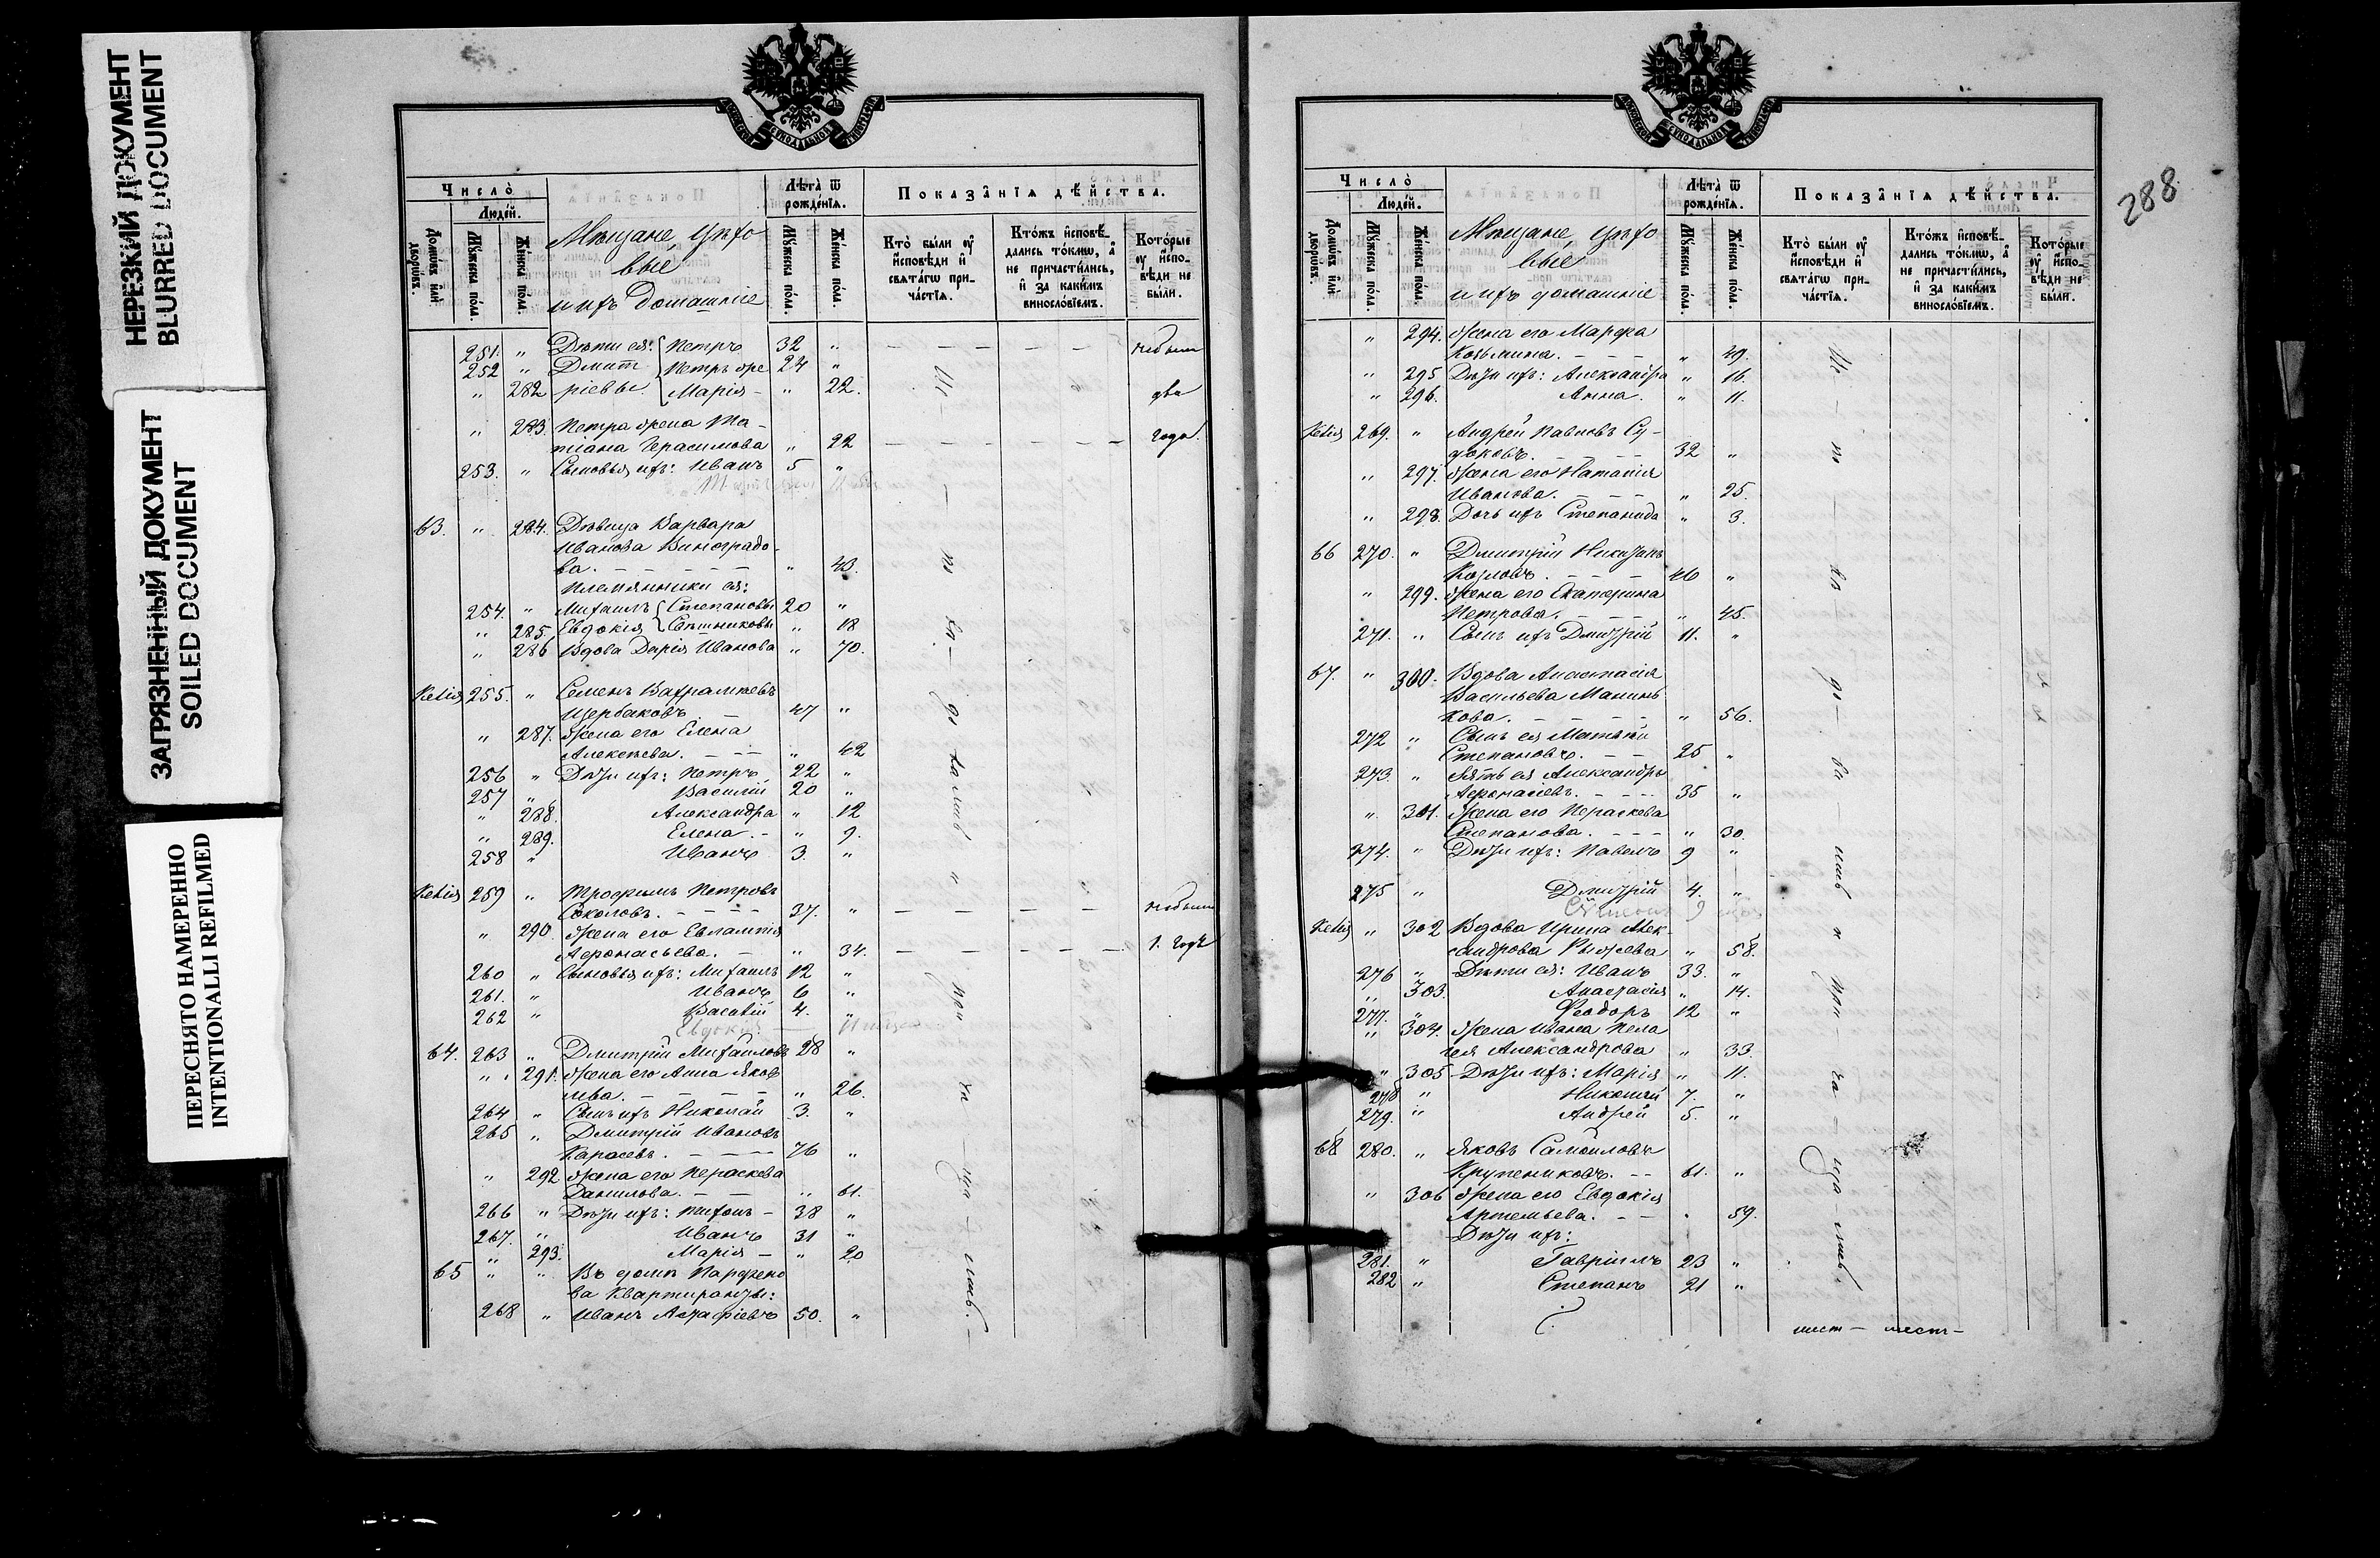 НЕРЕЗКИЙ ДОКУМЕНТ
BLURRED DOCUMENT
ЗАГРЯЗНЕННЫЙ ДОКУМЕНТ
SOILED DOCUMENT
ПЕРЕСНЯТО НАМЕРЕННО
INTENTIONALLI REFILMED
Число̀
Людей.
Домовъ или дворовъ.
Мужеска пола.
Женска пола.
Мѣщане, цехо
вые
и ихъ домашніе
Лѣта ѿ рожденїѧ.
Мужеска пола.
Женска пола.
Показанїѧ дѣйства.
Кто были оу исповѣди и свѧтагѡ причастїѧ.
Ктожъ исповѣдались токмѡ, а не причастились, и за какимъ винословїемъ.
Которые оу исповѣди не были.
251. " Дѣти ея: Петръ 32 " небыли
252 " Дмит Петръ же 24 "
" 282 ріевы. Марія - " 22. два
" 283. Петра жена Та-
тіана Герасимова " 22 года.
253. " Сыновья ихъ: Иванъ 5 "
63. " 284. Дѣвица Варвара
Иванова Виноградо-
ва. " 43.
Племянники ея:
254. " Михаилъ Степановы 20 "
" 285. Евдокія " 18
" 286 Вдова Дарія Иванова " 70.
255. " Семенъ
Щербаковъ 47 "
" 287. Жена его Елена
Алексѣева. " 42
256 " Дѣти ихъ: Петръ 22 "
257 " Василій 20 "
" 288. Александра " 12
" 289. Елена. - " 9.
258 " Иванъ 3. "
259 " Трофимъ Петровъ
Соколовъ. 37. " небыли
" 290 Жена его Евлампія
Афонасьева. " 34. 1. годъ
260 " Сыновья ихъ: Михаилъ 12 "
261. " Иванъ 6 "
262 " 4. "
64. 263 " Дмитрій Михайловъ 28 "
" 291. Жена его Анна Яков
лева. " 26.
264 " Сынъ ихъ Николай 3. "
265 " Дмитрій Ивановъ
Карасевъ. 76 "
" 292 Жена его Пераскева
Данилова. " 61.
266 " Дѣти ихъ: Тихонъ - 38 "
267. " Иванъ 31 "
" 293. Марія - " 20
65 " " Въ домѣ Парфено
ва квартиранты:
268 " Иванъ 50. "
288
Число̀
Людей.
Домовъ или дворовъ.
Мужеска пола.
Женска пола.
Мѣщане, цехо
вые
и ихъ домашніе
Лѣта ѿ рожденїѧ.
Мужеска пола.
Женска пола.
Показанїѧ дѣйства.
Кто были оу исповѣди и свѧтагѡ причастїѧ.
Ктожъ исповѣдались токмѡ, а не причастились, и за какимъ винословїемъ.
Которые оу исповѣди не были.
" 294. Жена его Марфа
Козьмина. " 49.
" 295 Дѣти ихъ: Александра " 16.
" 296. Анна. " 11.
269. " Андрей Павловъ Су-
доковъ. 32 "
" 297. Жена его Наталія
Иванова. " 25.
" 298. Дочь ихъ Степанида " 3.
66 270. " Дмитрій
Козловъ. 46 "
" 299. Жена его Екатерина
Петрова. " 45.
271. " Сынъ ихъ Дмитрій 11. "
67. " 300. Вдова Анастасія
Васильева
кова. " 56.
272 " Сынъ ея Матвѣй
Степановъ. 25 "
273. " Зять ея Александръ
Афонасіевъ. 35 "
" 301. Жена его Пераскева
Степанова. " 30.
274. " Дѣти ихъ: Павелъ 9 "
275 " Дмитрій 4. "
" 302 Вдова Ирина Алек
сандрова Рыжева " 58.
276 " Дѣти ея: Иванъ 33. "
" 303. Анастасія " 14.
277. " Феодоръ 12 "
" 304. Жена Ивана Пела
гея Александрова " 33.
" 305 Дѣти ихъ: Марія " 11.
278 " Николай 7. "
279. " Андрей 5. "
68 280. " Яковъ Самойловъ
Крупениковъ. 61. "
" 306 Жена его Евдокія
Артемьева. 59.
Дѣти ихъ:
281. " Гавріилъ 23 "
282 " Степанъ 21 "